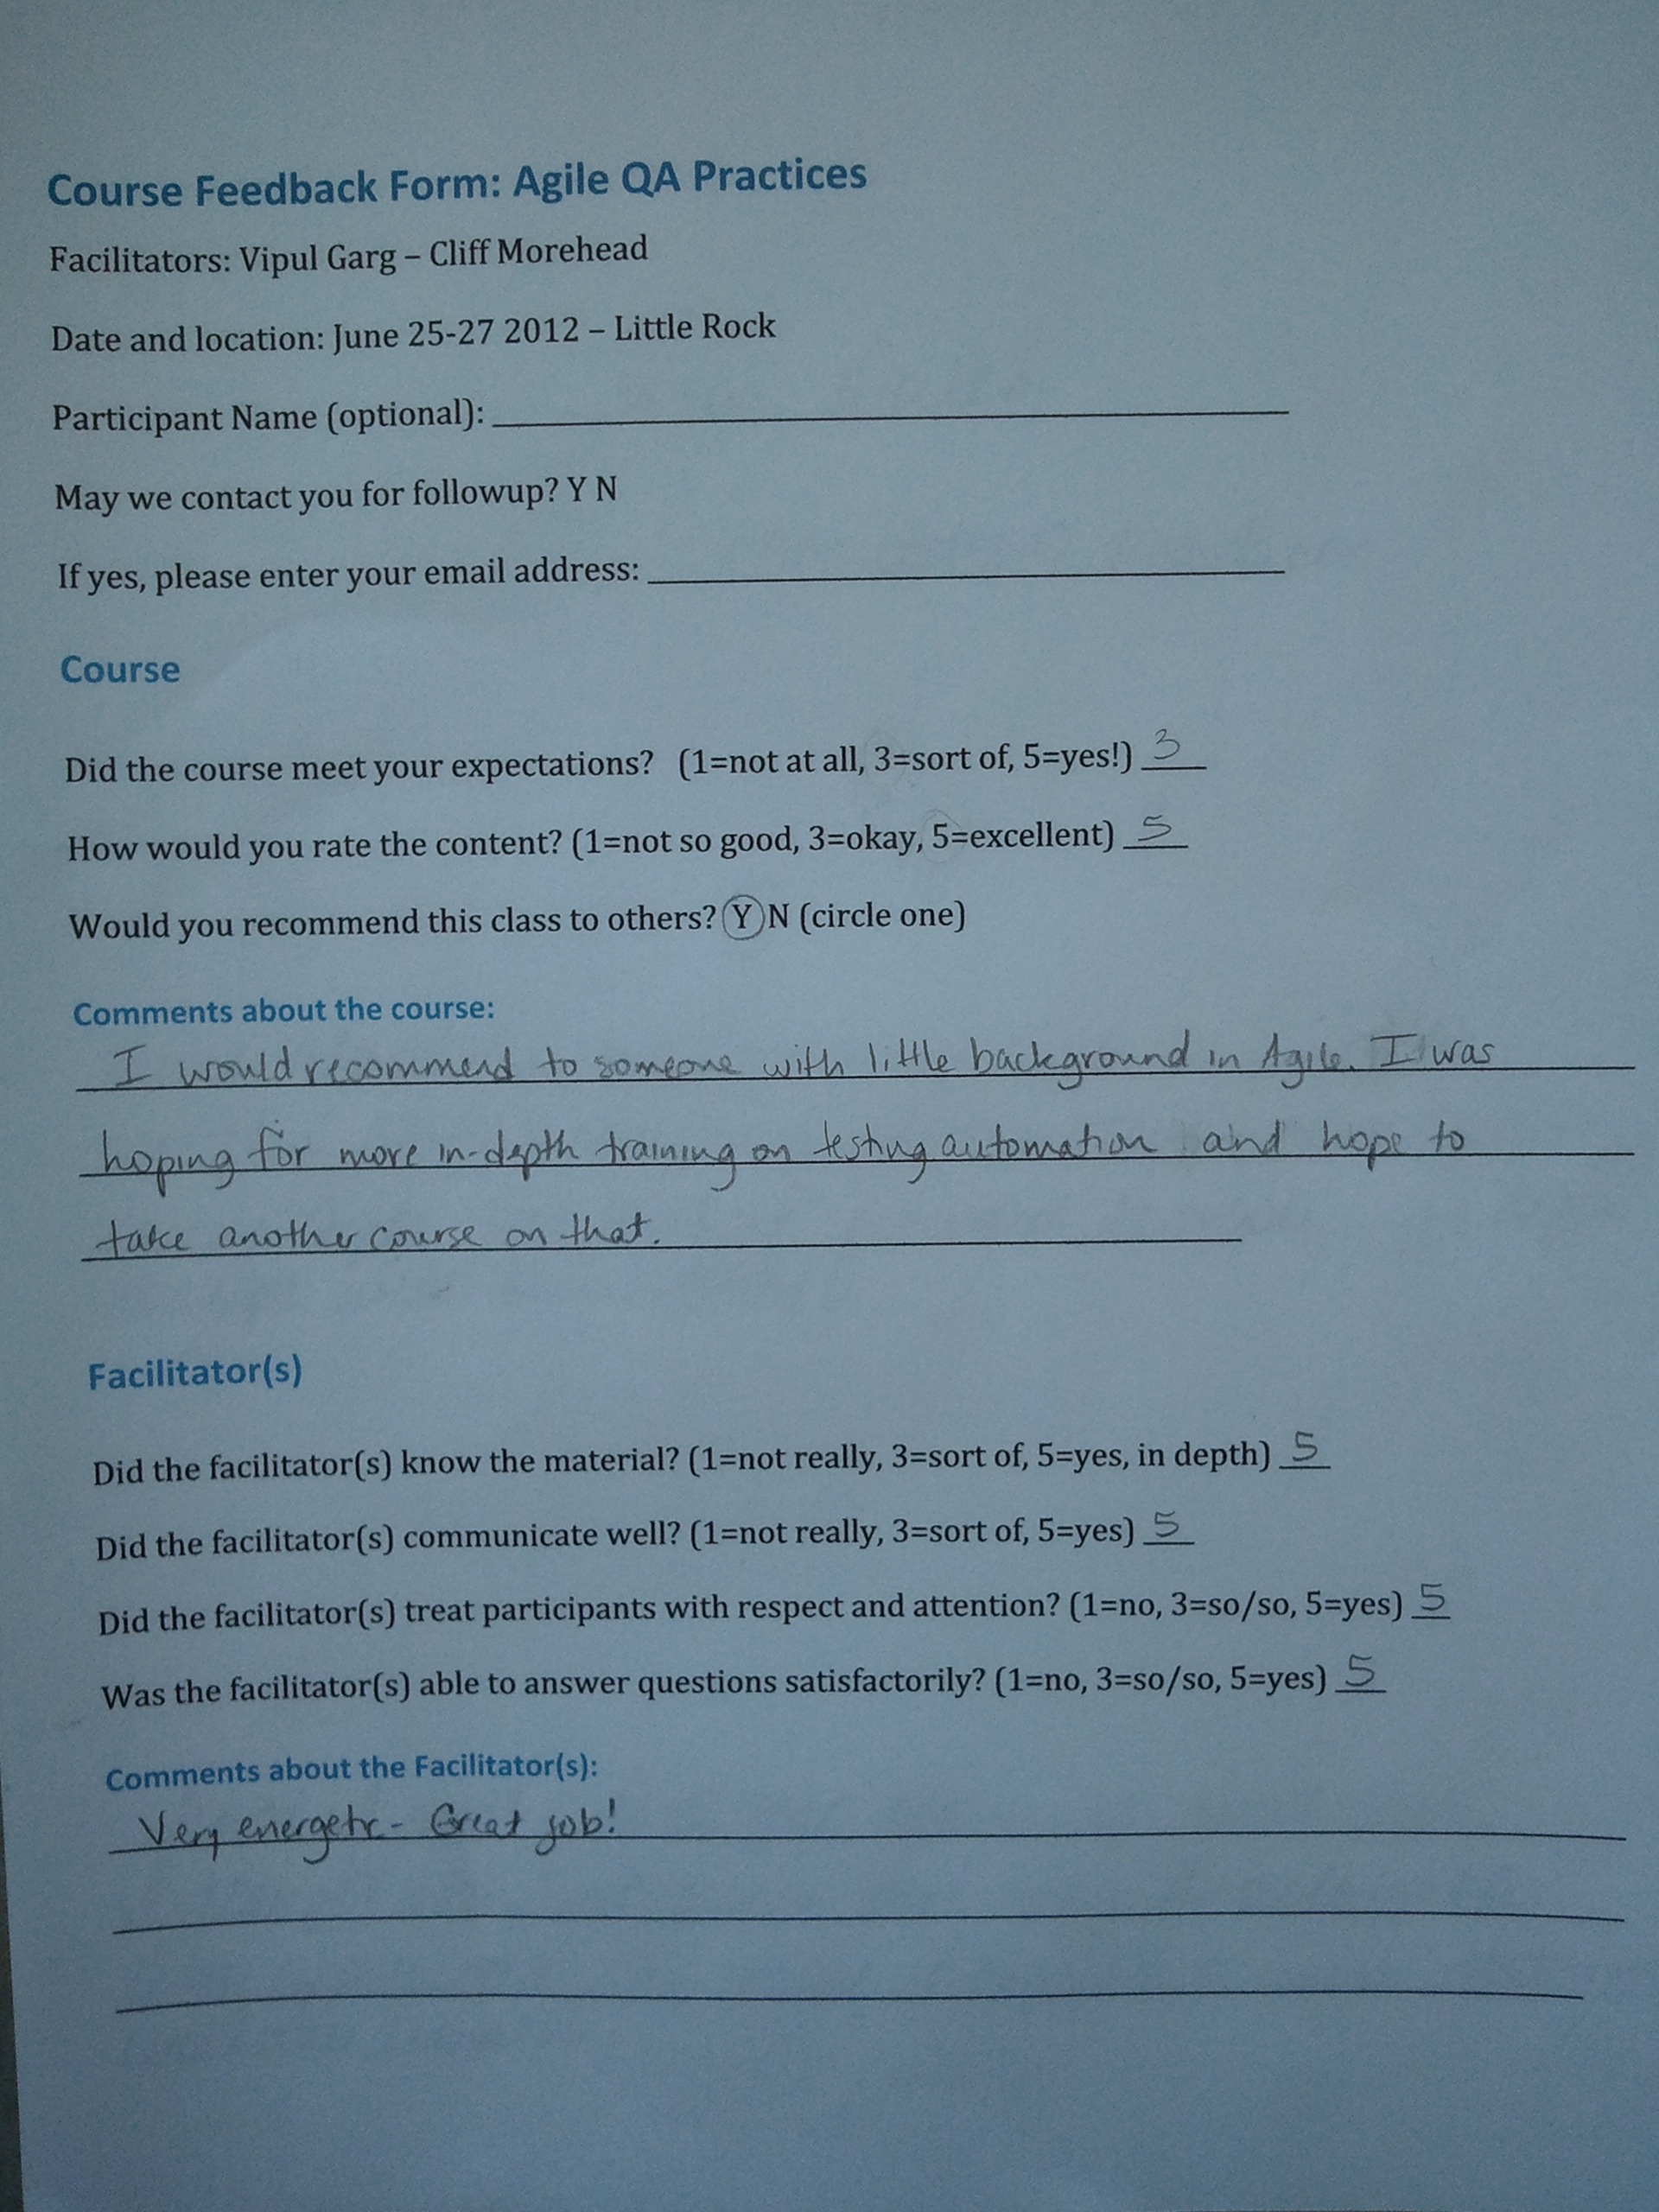 Course Feedback Form: Agile QA Practices
Facilitators: Vipul Garg – Cliff Morehead
Date and location: June 25-27 2012 – Little Rock
Participant Name (optional):
May we contact you for followup? Y N
If yes, please enter your email address:
Course
Did the course meet your expectations? (1=not at all, 3=sort of, 5=yes!) 3
How would you rate the content? (1=not so good, 3=okay, 5=excellent) 5
Would you recommend this class to others? Y N (circle one)
Comments about the course:
I would recommend to someone with little background in Agile. I was
hoping for more in-depth training on testing automation and hope to
take another course on that.
Facilitator(s)
Did the facilitator(s) know the material? (1=not really, 3=sort of, 5=yes, in depth) 5
Did the facilitator(s) communicate well? (1=not really, 3=sort of, 5=yes) 5
Did the facilitator(s) treat participants with respect and attention? (1=no, 3=so/so, 5=yes) 5
Was the facilitator(s) able to answer questions satisfactorily? (1=no, 3=so/so, 5=yes) 5
Comments about the Facilitator(s):
Very energetic - Great job!